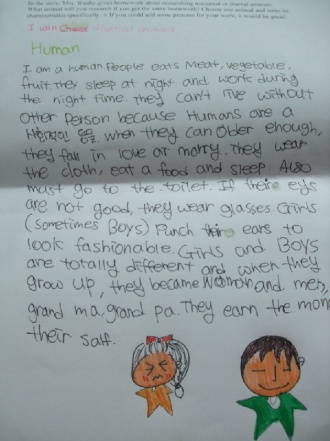 In the story, Mrs. Wardy gives homework about researching unnatural or cliental animals.
What animal will you research if you get the same homework? Choose one animal and write its
characteristics specifically. + If you could add some pictures for your work, it would be great!
I will Choose
Human
I am a human People eats Meat, vegetable,
fruit. they sleep at night and work during
the night time. they can't live without
Other Person because Humans are a
when they can older enough,
they fall in love or marry. They wear
the cloth, eat a food and sleep. Also
must go to the toilet. If their eys
are not good, they wear glasses. Girls
(sometimes Boys) Punch their ears to
look fashionable. Girls and Boys
are totally different and when they
grow up, they became Woman and men,
grand ma, grand pa. They earn the mon
their salf.